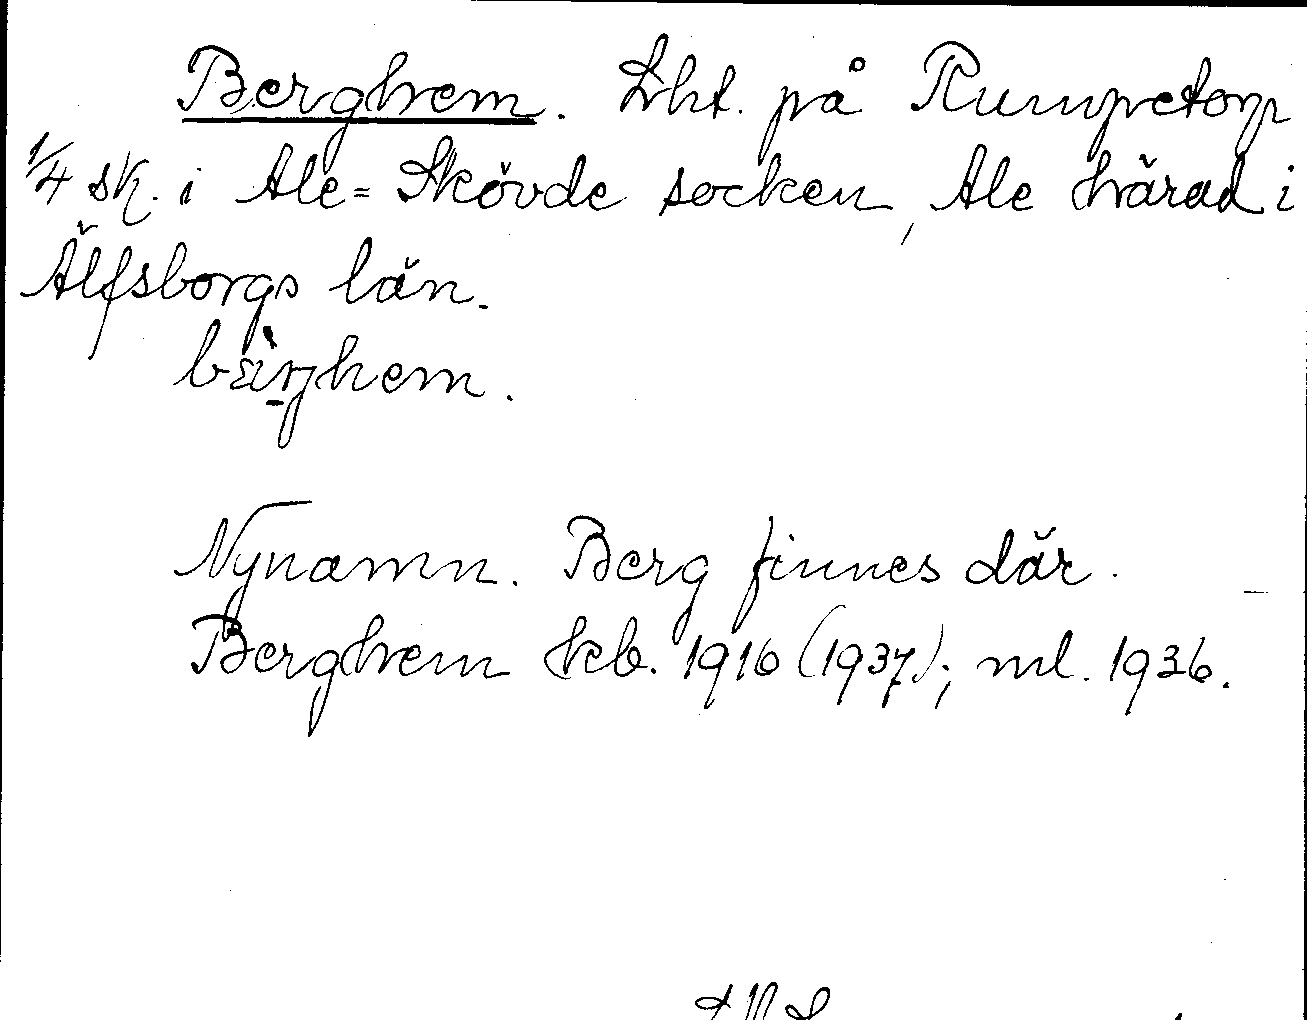 Berghem. Lht. på Rumpetorp
1/4 sk. i Ale-Skövde socken, Ale härad i
Älfsborgs län.
bærjhem.
Nynamn. Berg finnes där.
Berghem kb. 1916 (1937); ml. 1936.